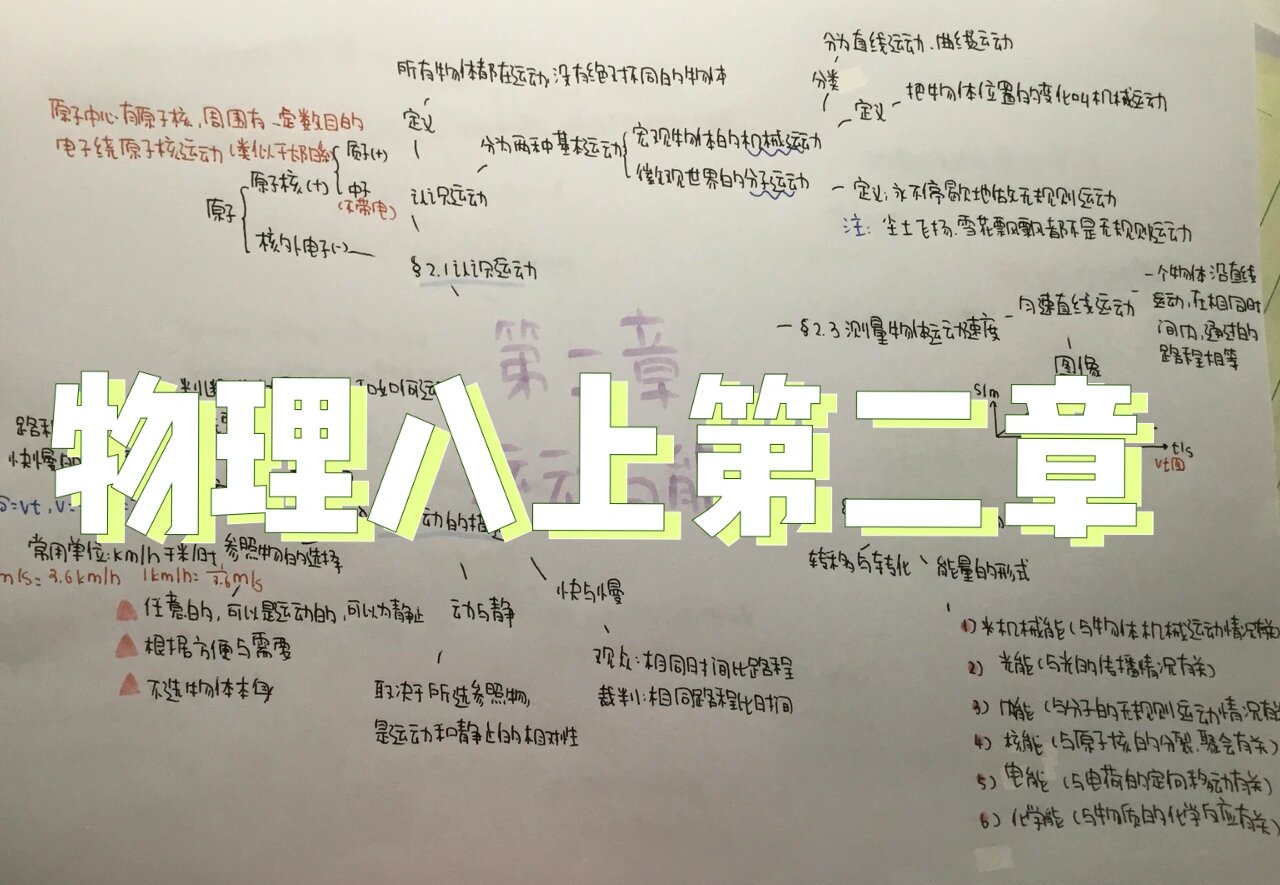 分为直线运动、曲线运动
分类
定义
把物体位置的变化叫机械运动
所有物体都在运动,没有绝对不同的物体
定义
分为两种基本运动
宏观物体的机械运动
微观世界的分子运动
定义:永不停歇地做无规则运动
注: 尘土飞扬、雪花飘飘都不是无规则运动
认识运动
§2.1认识运动
原子中心有原子核,周围有一定数目的
电子绕原子核运动(类似于太阳系
原子
原子核(+)
质子(+)
中子
(不带电)
核外电子(-)
§2.3测量物体运动速度
匀速直线运动
一个物体沿直线
运动,在相同时
间内,通过的
路程相等
图像
S/m
t/s
vt图
第二章
物理八上第二章
快慢
S=vt,
常用单位:km/h 千米/时
m/s=3.6km/h 1km/h=1/3.6m/s
参照物的选择
任意的,可以是运动的,可以为静止
根据方便与需要
不选物体本身
动与静
取决于所选参照物,
是运动和静止的相对性
快与慢
观众:相同时间比路程
裁判:相同路程比时间
转移与转化
能量的形式
1)*机械能(与物体机械运动情况有关)
2) 光能(与光的传播情况有关)
3) 内能(与分子的无规则运动情况有
4) 核能(与原子核的分裂、聚合有关)
5) 电能(与电荷的定向移动有关)
6) 化学能(与物质的化学反应有关)